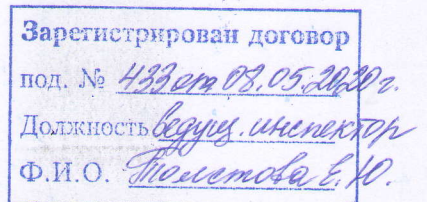 Зарегистрирован договор
под. № 433 от 08.05.2020 г.
Должность ведущ. инспектор
Ф.И.О. Толстова Е. Ю.